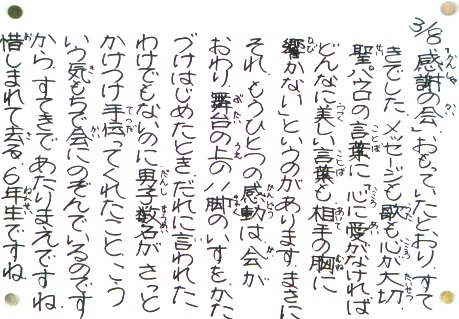 3/8「感謝の会」おもっていたとおり、すて
きでした。メッセージも歌も心が大切。
聖パウロの言葉に「心に愛がなければ
どんなに美しい言葉も相手の胸に
響かない」というのがあります。まさに
それ。もうひとつの感動は、会が
おわり、舞台の上の11脚のいすをかた
づけはじめたとき、だれに言われた
わけでもないのに男子数名が、さっと
かけつけ手伝ってくれたこと。こう
いう気もちで会にのぞんでいるのです
から、すてきであたりまえですね。
惜しまれて去る6年生ですね。